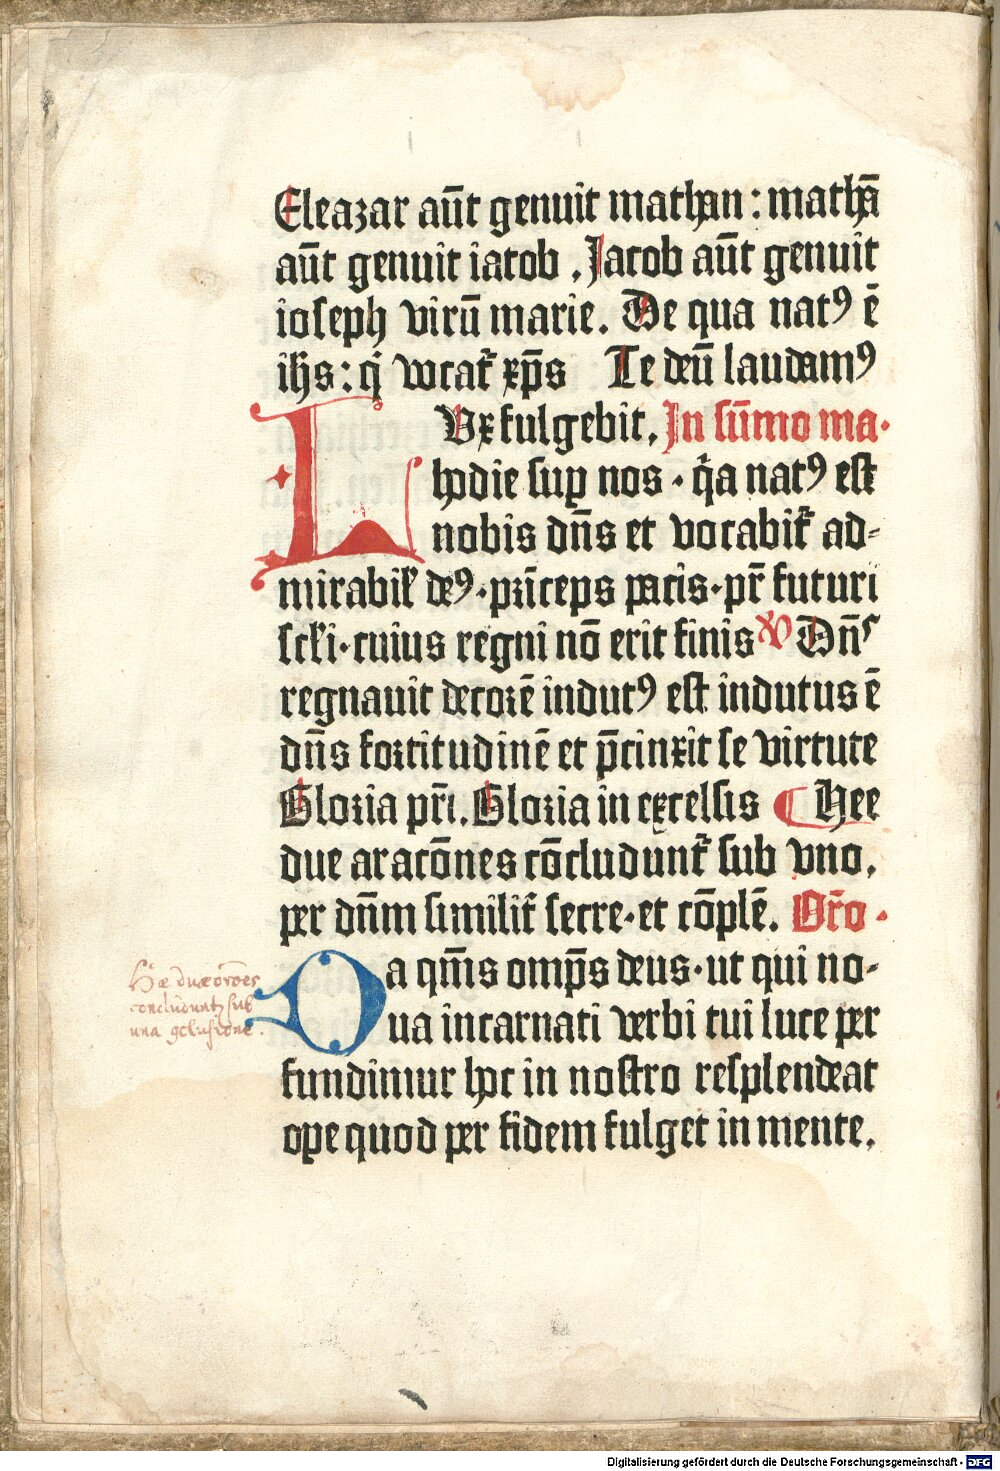 Eleazar aūt genuit mathan : mathā
aūt genuit iacob . Jacob aūt genuit
ioseph virū marie. De qua natꝰ ē
ihs : q̇ vocat᷑ xp̄s Te deū laudamꝰ
LUx fulgebit. In sūmo ma·
hodie suꝑ nos · q̇a natꝰ est
nobis dn̄s et vocabit᷑ ad⸗
mirabil᷑ deꝰ · prīceps pacis · pr̄ futuri
scl᷑i · cuius regni nō erit finis ℣ Dn̄s
regnauit decorē indutꝰ est indutus ē
dn̄s fortitudinē et p̄cinxit se virtute
Gloria pr̄i. Gloria in excelsis ¶ Hee
due aracōnes cōcludunt᷑ sub vno.
per dn̄m similit᷑ secre· et cōplē. Or̄o ·
DA qm̄s omp̄s deus · ut qui no⸗
ua incarnati verbi tui luce per
fundimur hoc in nostro resplendeat
ope quod per fidem fulget in mente.
Hæ duæ orōes
concludunt᷑ sub
una ꝯclusione.
Digitalisierung gefördert durch die Deutsche Forschungsgemeinschaft - DFG